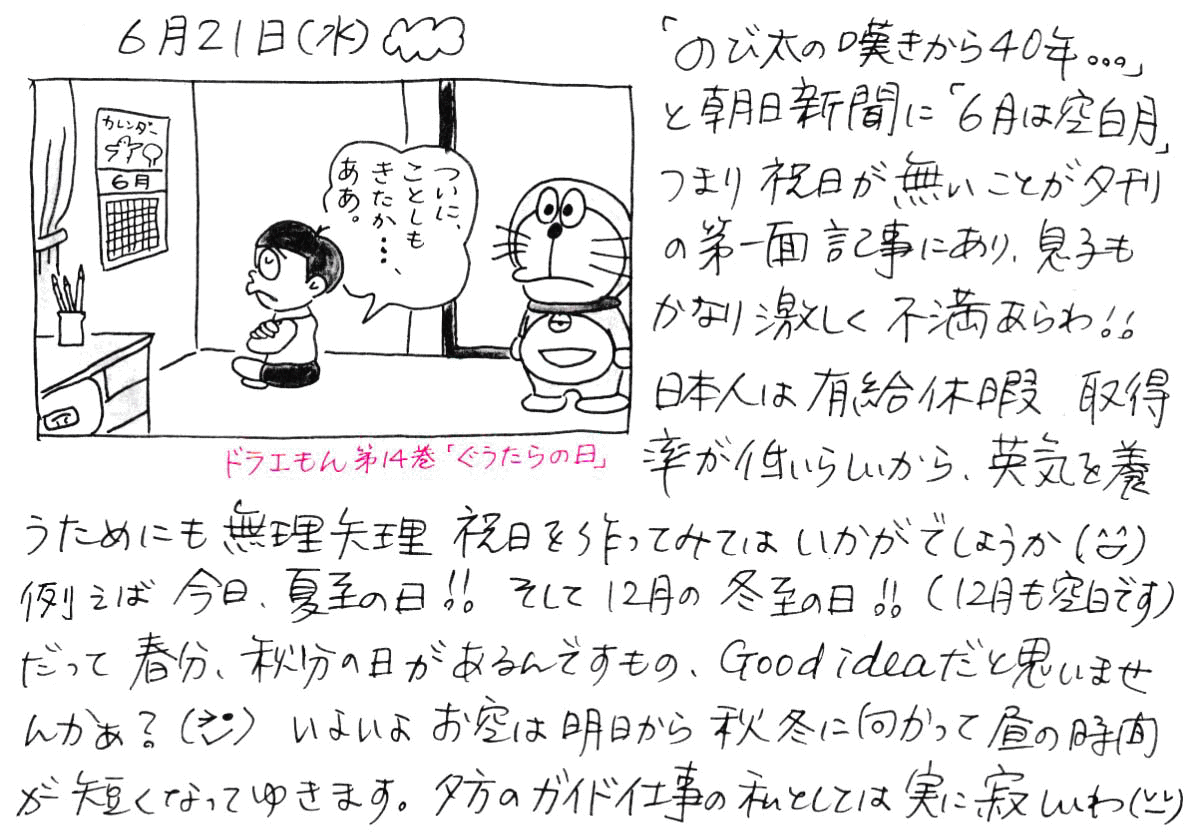 6月21日(水)
カレンダー
6月
ついに、
ことしも
きたか…、
ああ。
ドラえもん第14巻「ぐうたらの日」
「のび太の嘆きから40年...」
と朝日新聞に「6月は空白月」
つまり祝日が無いことが夕刊
の第一面記事にあり、息子も
かなり激しく不満あらわ!!
日本人は有給休暇 取得
率が低いらしいから、英気を養
うためにも無理矢理 祝日を作ってみてはいかがでしょうか(^^)
例えば今日、夏至の日!! そして12月の冬至の日!! (12月も空白です)
だって春分、秋分の日があるんですもの、Good ideaだと思いませ
んかぁ? いよいよお空は明日から秋冬に向かって昼の時間
が短くなってゆきます。夕方のガイド仕事の私としては実に寂しいわ